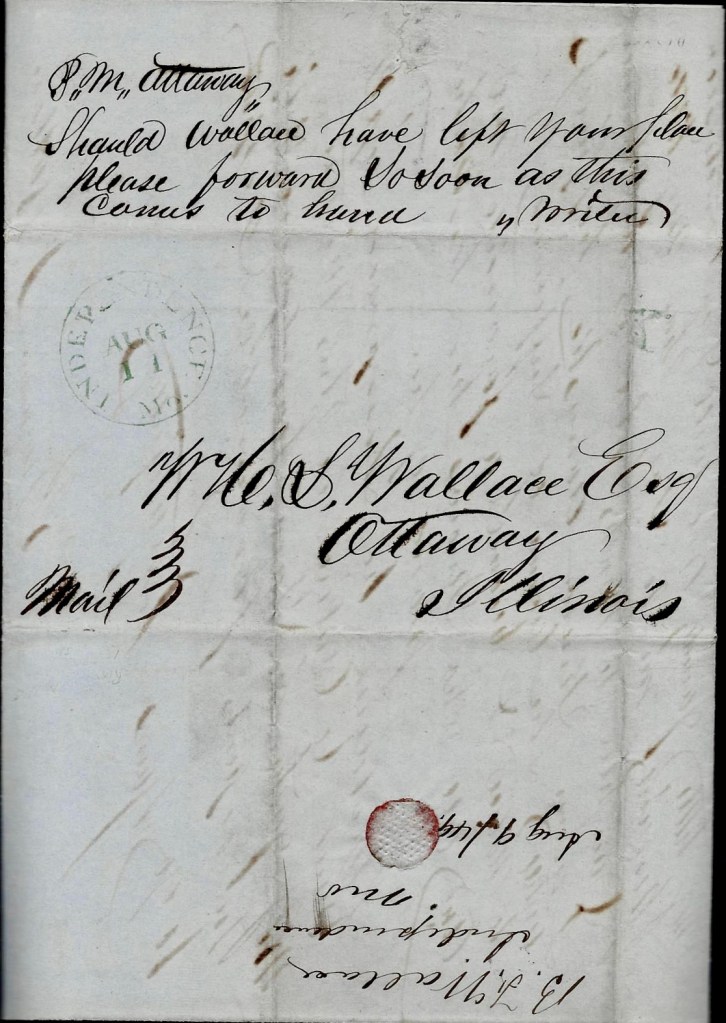 P.M. Ottaway
Should Wallace have left your place
please forward So soon as this
Comes to hand " Writer
INDEPENDENCE Mo.
AUG
11
W.H.L. Wallace Esq
Ottaway
Mail
Illinois
Aug 9/49.
Mo
Independence
B.F. Wallace